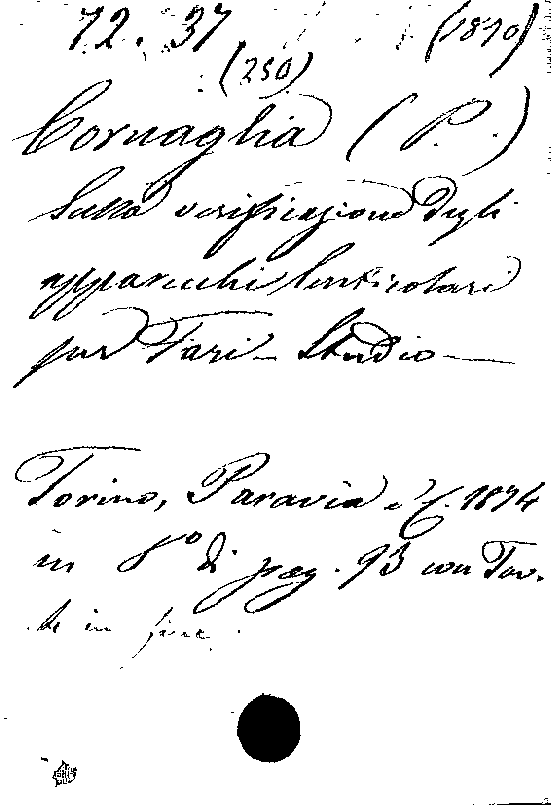 72. 37 (1870)
(250)
Cornaglia (P.)
Sulla verificazione degli
apparecchi lenticolari
per Fari - Studio -
Torino, Paravia e C. 1874
in 8º di pag. 93 con Tav.
te in fine.